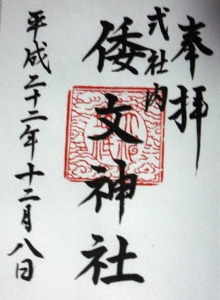 奉拝
式社内
倭文神社
平成二十二年十二月八日